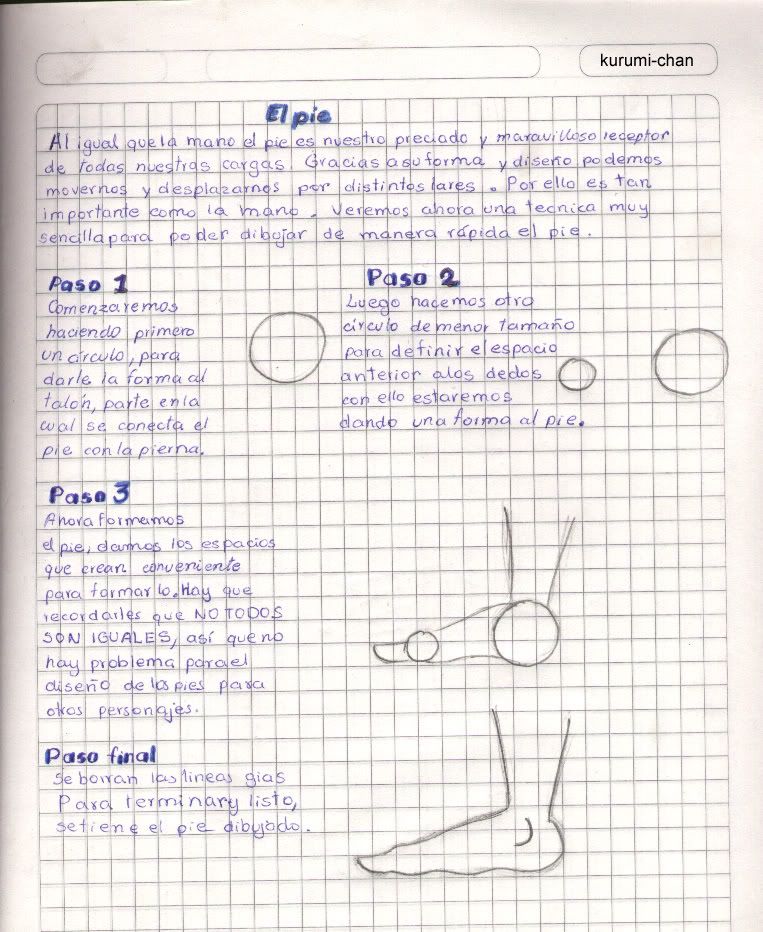 kurumi-chan
El pie
Al igual que la mano el pie es nuestro preciado y maravilloso receptor
de todas nuestras cargas. Gracias a su forma y diseño podemos
movernos y desplazarnos por distintos lares. Por ello es tan
importante como la mano. Veremos ahora una tecnica muy
sencilla para poder dibujar de manera rápida el pie.
Paso 1
Comenzaremos
haciendo primero
un circulo, para
darle la forma al
talón, parte en la
cual se conecta el
pie con la pierna.
Paso 2
Luego hacemos otro
círculo de menor tamaño
para definir el espacio
anterior a los dedos
con ello estaremos
dando una forma al pie.
Paso 3
Ahora formamos
el pie, damos los espacios
que crean conveniente
para formarlo. Hay que
recordarles que NO TODOS
SON IGUALES, así que no
hay problema para el
diseño de los pies para
otros personajes.
Paso final
Se borran las lineas gias
Para terminar y listo,
se tiene el pie dibujado.